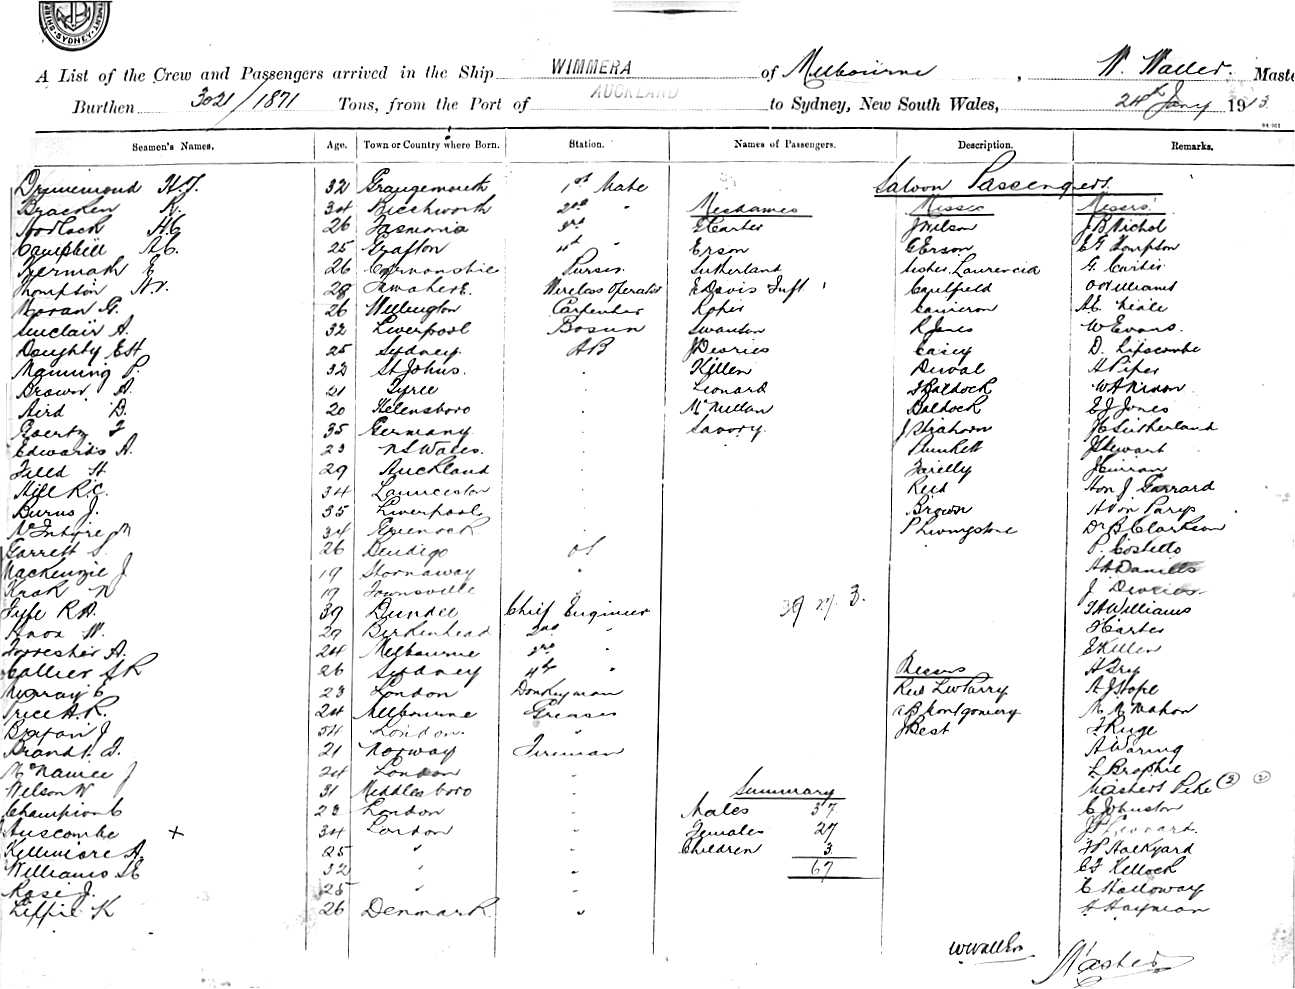 SYDNEY
A List of the Crew and Passengers arrived in the Ship WIMMERA of Melbourne, W. Waller. Maste
Burthen 3021/1871 Tons, from the Port of AUCKLAND to Sydney, New South Wales, 24th Jany 1913.
Seamen's Names. Age. Town or Country where Born. Station. Names of Passengers. Description. Remarks.
Saloon Passengers.
Drummond H.J. 32 Grangemouth 1st Mate
Bracken R. 34 Beechworth 2nd " Mesdames Misses Messrs.
H.C. 26 Tasmania 3rd G Carter J Wilson J B Nichol
Campbell A.C. 25 Grafton 4th " Erson G Erson E G Thompson
Kermath E 26 Purser Sutherland Laurencia G. Curtis
Thompson 28 Wireless Operator E Davis Inft Caulfield O Williams
Moran G. 26 Wellington Carpenter Cameron A.E. Neale
Sinclair A. 32 Liverpool Bosun Swanson R Jones W Evans.
Doughty E H 25 Sydney AB J Desries Casey D. Lipscombe
Manning P. 32 St Johns. Killen Duval A Piper
Brown A. 21 Tyree Leonard Baldock W A Nixon
Aird D. 20 Helensboro McMillan Baldock E J Jones
35 Germany Savory. J Strahorn J C Sutherland
Edwards A. 23 N S Wales. Plunkett J Stewart
Field H 29 Auckland Fairelly J Curran
Hill R.C. 34 Launceston Reid Hon J. Garrard
Burns J. 35 Liverpool Brown A Von Parys
McIntyre M 34 Greenock P Livingstone Dr B Clarkson
Garrett S. 26 Bendigo OS P. Costello
Mackenzie J 19 Stornaway A H Daniells
Krak N 19 Townsville J Devries
Fyfe R.D. 39 Dundee Chief Engineer 39 27. 3. T H Williams
Knox W. 29 Birkenhead 2nd " F Carter
Forrester A. 24 Melbourne 3rd " E Killen
Collier S R 26 Sydney 4th " Messrs A Fry
Murray C 23 London Donkeyman Reid Lew Parry A J Hope
Price A.R. 24 Melbourne Greaser A B Montgomery M McMahon
Buxton J 54 London. " J Best F Ruge
Brandt J. 21 Norway Fireman A Waring
McNamee J 24 London L Brophie
Nelson W 31 Middlesboro Summary Masters Pike (2)
Champion C 23 London Males 37 C Johnston
Anscombe X 34 London Females 27 J Leonard.
Kellmore A. 25 " Children 3. F P Hackyard
Williams D E 32 " 67 C F Kellock
Rose J. 25 " C Holloway
Liffie K 26 Denmark. " Hayman
W Waller
Master